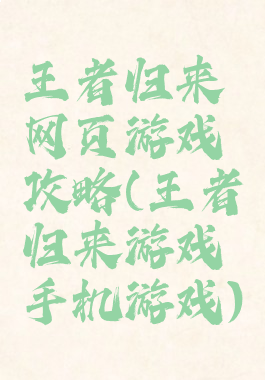 王者归来
网页游戏
攻略(王者
归来游戏
手机游戏)